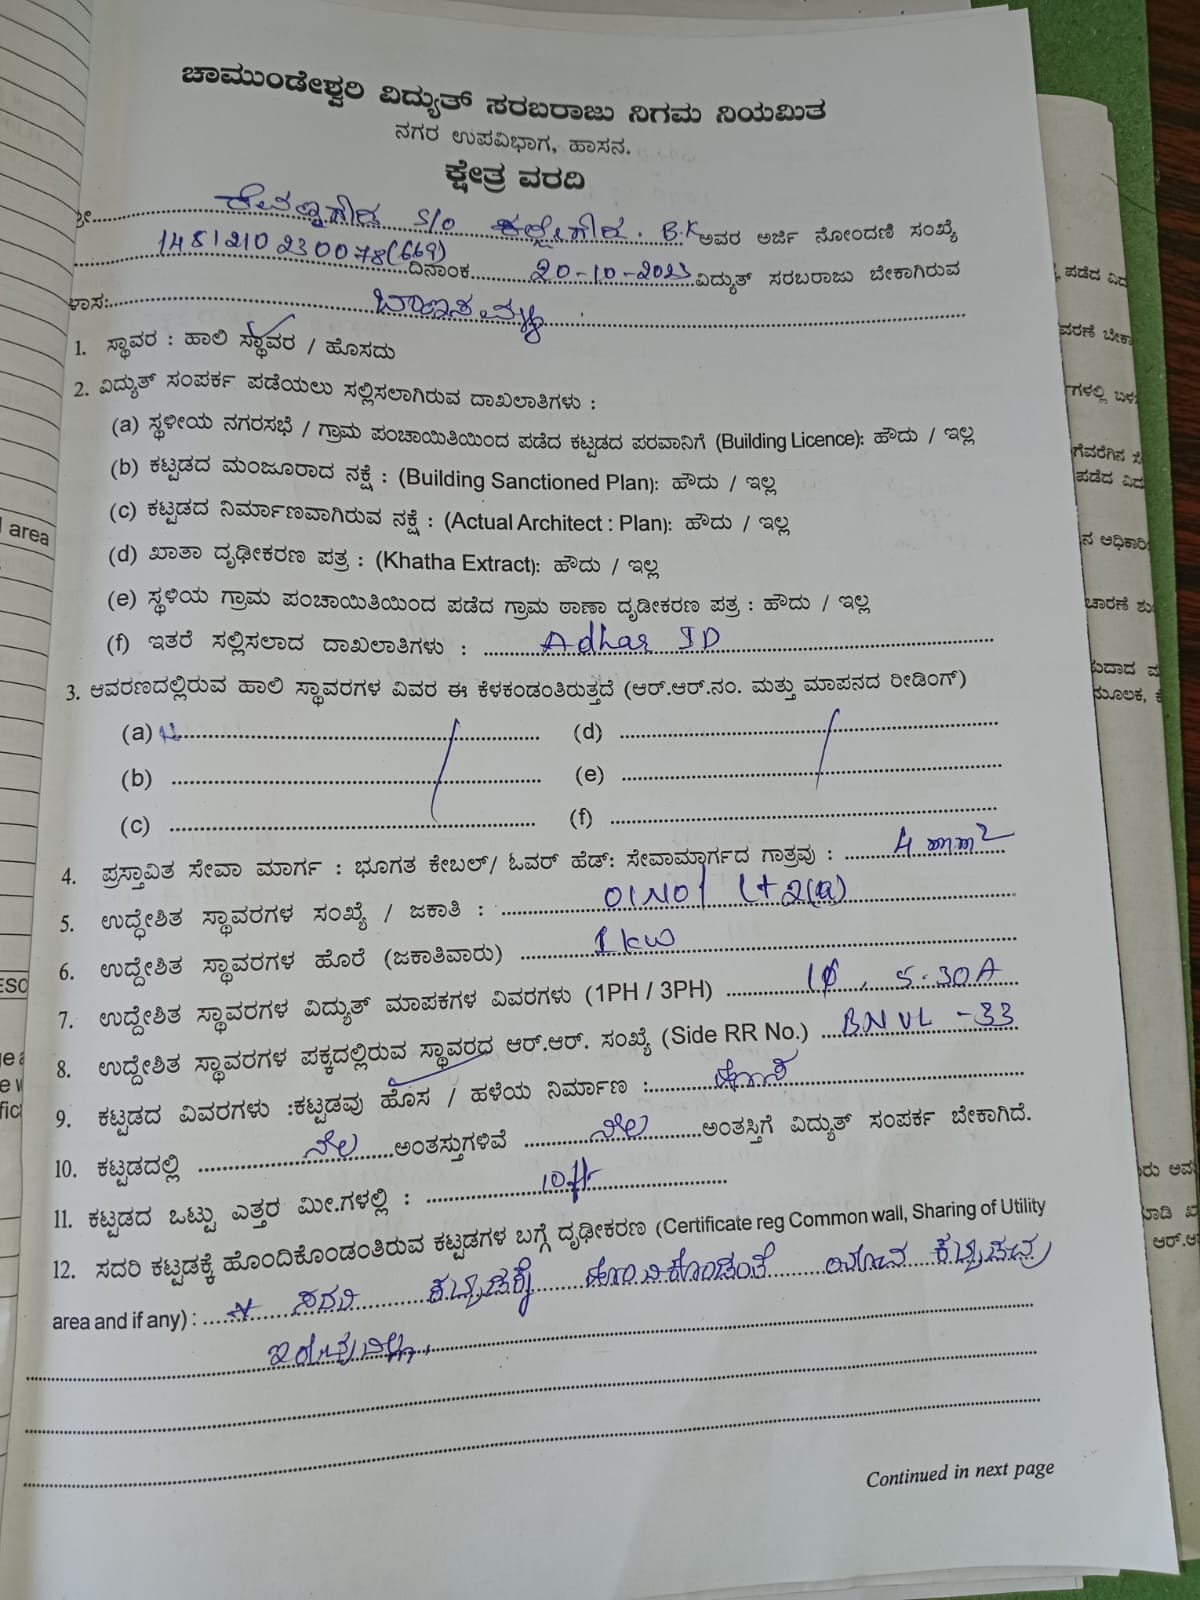 ಚಾಮುಂಡೇಶ್ವರಿ ವಿದ್ಯುತ್ ಸರಬರಾಜು ನಿಗಮ ನಿಯಮಿತ
ನಗರ ಉಪವಿಭಾಗ, ಹಾಸನ.
ಕ್ಷೇತ್ರ ವರದಿ
S/O B.K ಅವರ ಅರ್ಜಿ ನೋಂದಣಿ ಸಂಖ್ಯೆ
1481210230078(669) ದಿನಾಂಕ 20-10-2023 ವಿದ್ಯುತ್ ಸರಬರಾಜು ಬೇಕಾಗಿರುವ
ಳಾಸ:
1. ಸ್ಥಾವರ : ಹಾಲಿ ಸ್ಥಾವರ / ಹೊಸದು
2. ವಿದ್ಯುತ್ ಸಂಪರ್ಕ ಪಡೆಯಲು ಸಲ್ಲಿಸಲಾಗಿರುವ ದಾಖಲಾತಿಗಳು :
(a) ಸ್ಥಳೀಯ ನಗರಸಭೆ / ಗ್ರಾಮ ಪಂಚಾಯಿತಿಯಿಂದ ಪಡೆದ ಕಟ್ಟಡದ ಪರವಾನಿಗೆ (Building Licence): ಹೌದು / ಇಲ್ಲ
(b) ಕಟ್ಟಡದ ಮಂಜೂರಾದ ನಕ್ಷೆ : (Building Sanctioned Plan): ಹೌದು / ಇಲ್ಲ
(c) ಕಟ್ಟಡದ ನಿರ್ಮಾಣವಾಗಿರುವ ನಕ್ಷೆ : (Actual Architect : Plan): ಹೌದು / ಇಲ್ಲ
(d) ಖಾತಾ ದೃಢೀಕರಣ ಪತ್ರ : (Khatha Extract): ಹೌದು / ಇಲ್ಲ
(e) ಸ್ಥಳಿಯ ಗ್ರಾಮ ಪಂಚಾಯಿತಿಯಿಂದ ಪಡೆದ ಗ್ರಾಮ ಠಾಣಾ ದೃಡೀಕರಣ ಪತ್ರ : ಹೌದು / ಇಲ್ಲ
(f) ಇತರೆ ಸಲ್ಲಿಸಲಾದ ದಾಖಲಾತಿಗಳು : Adhar ID
3. ಆವರಣದಲ್ಲಿರುವ ಹಾಲಿ ಸ್ಥಾವರಗಳ ವಿವರ ಈ ಕೆಳಕಂಡಂತಿರುತ್ತದೆ (ಆರ್.ಆರ್.ನಂ. ಮತ್ತು ಮಾಪನದ ರೀಡಿಂಗ್)
(a) (d)
(b) (e)
(c) (f)
4. ಪ್ರಸ್ತಾವಿತ ಸೇವಾ ಮಾರ್ಗ : ಭೂಗತ ಕೇಬಲ್/ ಓವರ್ ಹೆಡ್: ಸೇವಾಮಾರ್ಗದ ಗಾತ್ರವು : 4 mm2
5. ಉದ್ಧೇಶಿತ ಸ್ಥಾವರಗಳ ಸಂಖ್ಯೆ / ಜಕಾತಿ : 01 NO / Lt 2(a)
6. ಉದ್ದೇಶಿತ ಸ್ಥಾವರಗಳ ಹೊರೆ (ಜಕಾತಿವಾರು) 1 kw
7. ಉದ್ದೇಶಿತ ಸ್ಥಾವರಗಳ ವಿದ್ಯುತ್ ಮಾಪಕಗಳ ವಿವರಗಳು (1PH / 3PH) 1φ, 5-30A
8. ಉದ್ದೇಶಿತ ಸ್ಥಾವರಗಳ ಪಕ್ಕದಲ್ಲಿರುವ ಸ್ಥಾವರದ ಆರ್.ಆರ್. ಸಂಖ್ಯೆ (Side RR No.) BNVL -33
9. ಕಟ್ಟಡದ ವಿವರಗಳು :ಕಟ್ಟಡವು ಹೊಸ / ಹಳೆಯ ನಿರ್ಮಾಣ : ಹೊಸ
10. ಕಟ್ಟಡದಲ್ಲಿ ನೆಲ ಅಂತಸ್ತುಗಳಿವೆ ನೆಲ ಅಂತಸ್ತಿಗೆ ವಿದ್ಯುತ್ ಸಂಪರ್ಕ ಬೇಕಾಗಿದೆ.
11. ಕಟ್ಟಡದ ಒಟ್ಟು ಎತ್ತರ ಮೀ.ಗಳಲ್ಲಿ : 10ft
12. ಸದರಿ ಕಟ್ಟಡಕ್ಕೆ ಹೊಂದಿಕೊಂಡಂತಿರುವ ಕಟ್ಟಡಗಳ ಬಗ್ಗೆ ದೃಢೀಕರಣ (Certificate reg Common wall, Sharing of Utility
area and if any) : ಸದರಿ ಕಟ್ಟಡಕ್ಕೆ ಹೊಂದಿಕೊಂಡಂತೆ ಯಾವ ಕಟ್ಟಡವೂ
ಇರುವುದಿಲ್ಲ.
Continued in next page